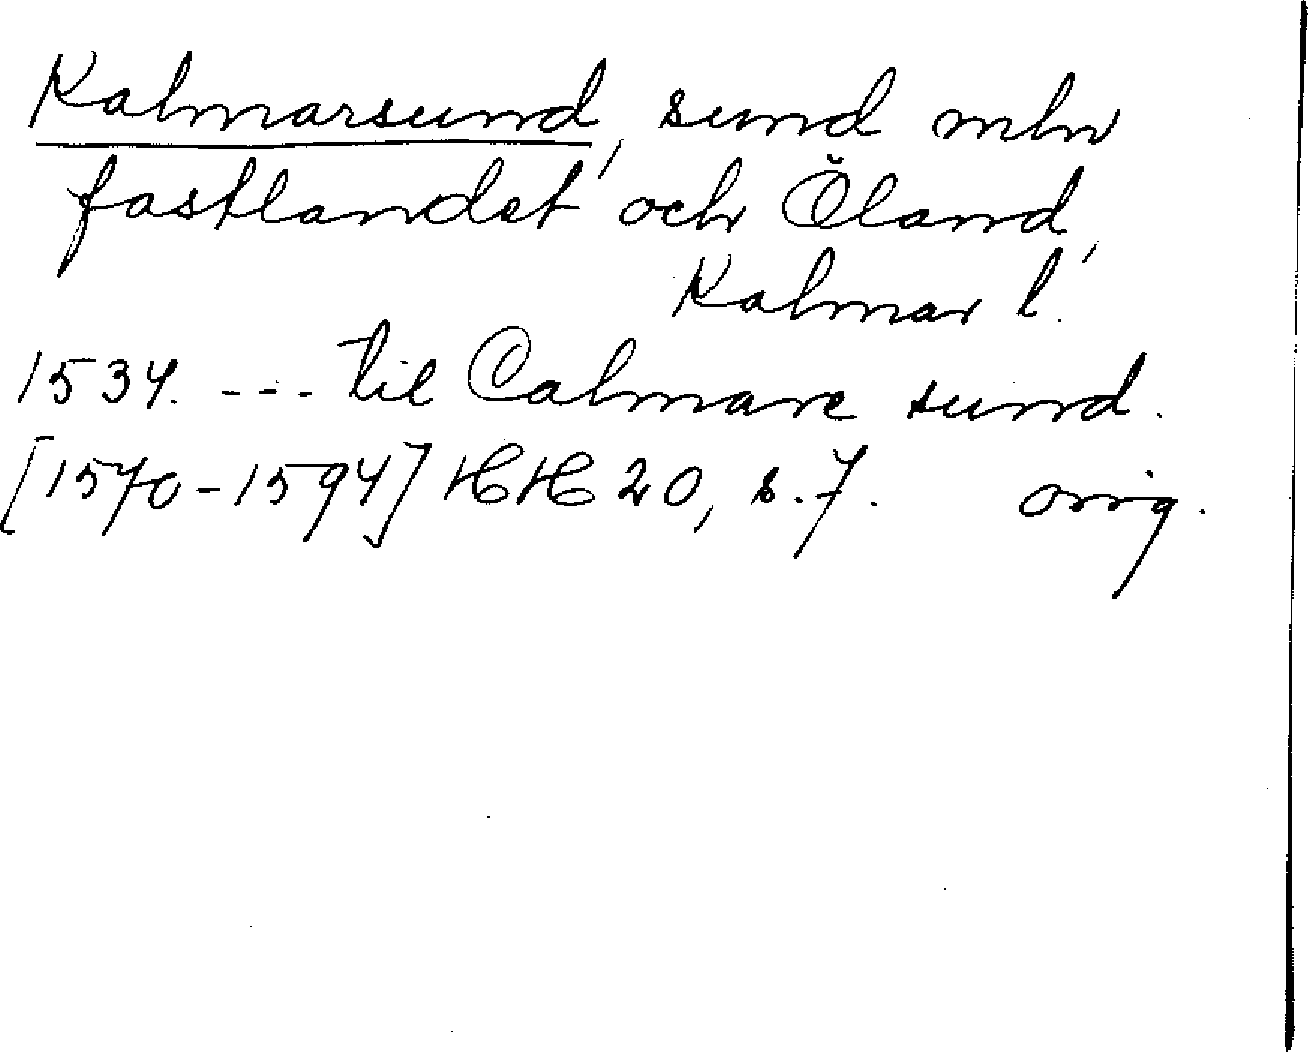 Kalmarsund, sund mln
fastlandet och Öland,
Kalmar l.
1534. --- til Calmare sund.
[1570-1594] HH 20, s. 7. orig.